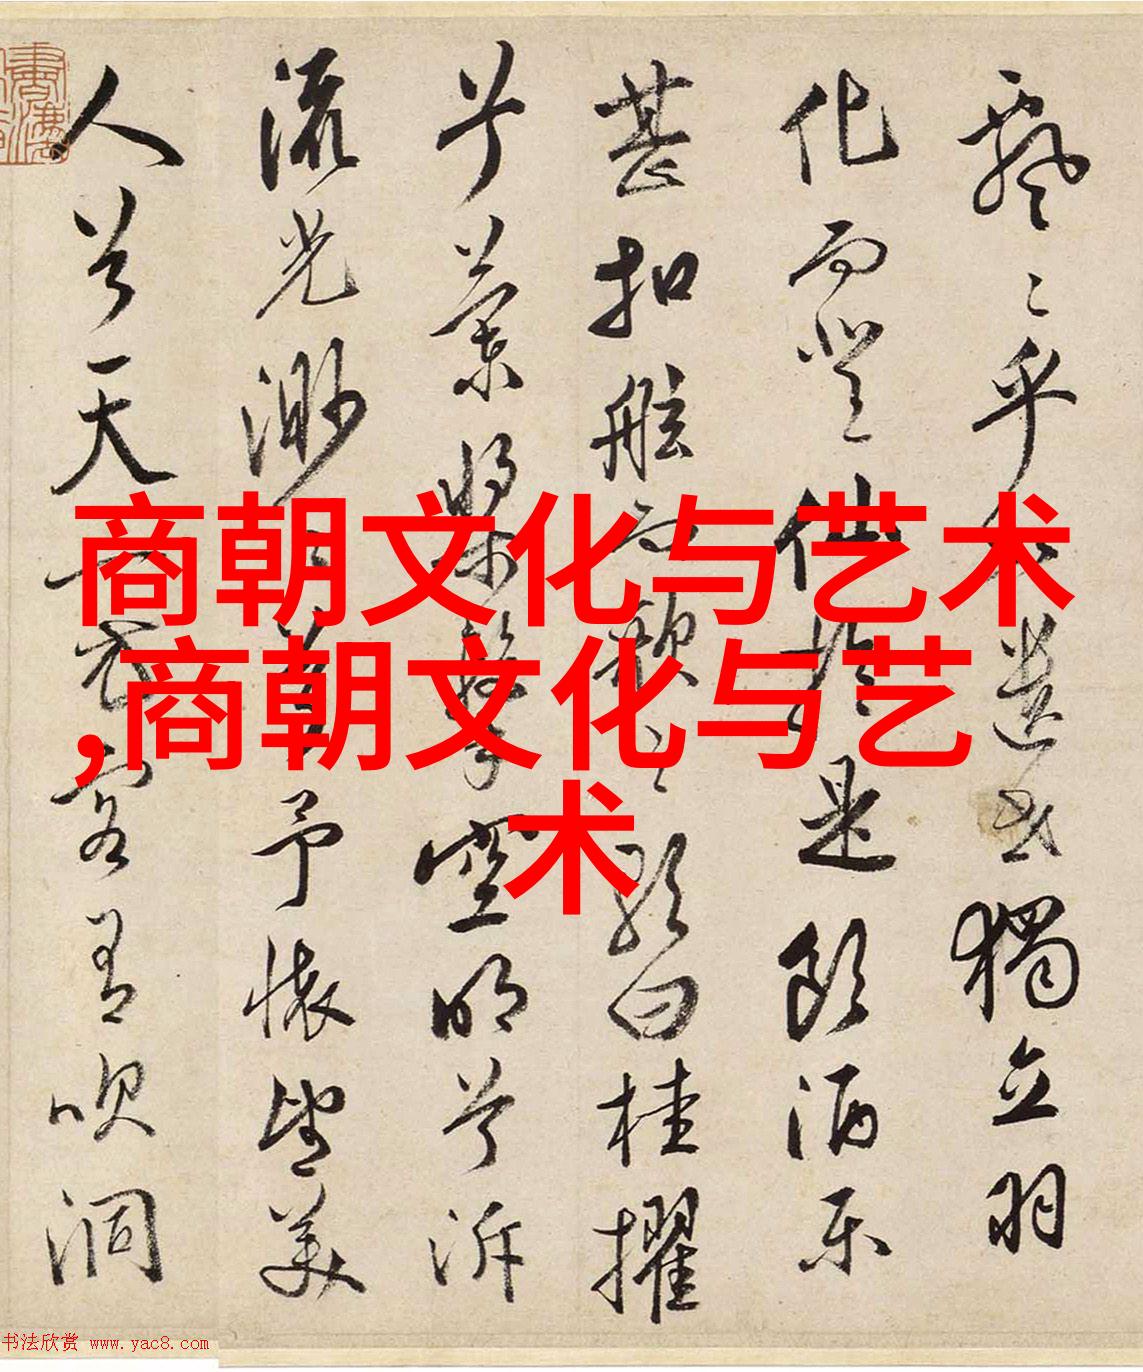 商朝文化与艺术
,商朝文化与艺
术
飄〻乎遺世獨立羽
化而登仙於是飲酒樂
甚扣舷而歌之歌曰桂擢
兮蘭槳擊空明兮泝
流光渺〻兮予懷望美
人兮天一方客有吹洞
书法欣赏 www.yac8.com